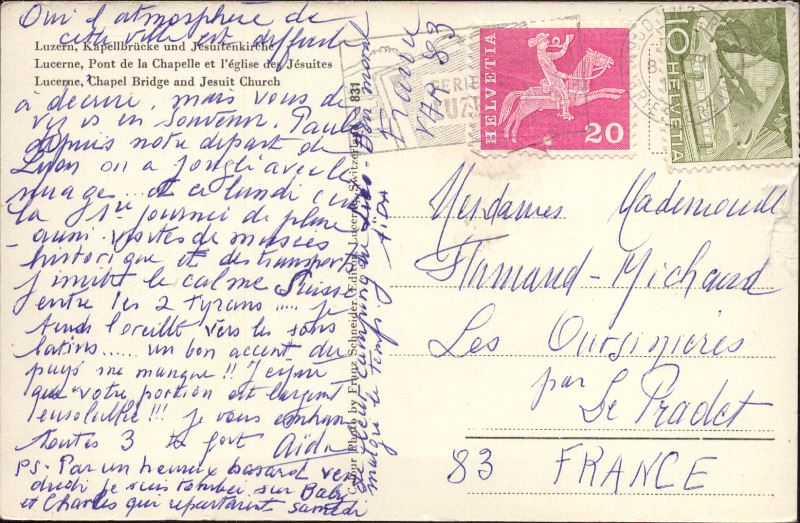 Oui l'atmosphère de
cette ville est difficile
Luzern, Kapellbrücke und Jesuitenkirche
Lucerne, Pont de la Chapelle et l'église des Jésuites
Lucerne, Chapel Bridge and Jesuit Church
à décrire, mais vous de
en souvenir. Paule
depuis notre départ de
Lyon on a jonglé avec le
nuage... et ce lundi c'est
la 1ère journée de pluie
- aussi visites de musées
historique et des transports
J'imite le calme Suisse
entre les 2 tyrans..... je
tends l'oreille vers les sons
latins...... un bon accent du
pays me manque!! J'espère
que votre portion est largent
ensoleillée!!! Je vous embrasse
toutes 3 très fort Aida
PS. Par un heureux hasard ven
dredi je suis tombée sur Baby
et Charles qui repartaient samedi
Colour Photo by Franz Schneider, Edition, Lucerne, Switzerland
831
malgré le temps. Aida
France
VAR 83
HELVETIA
20
10
HELVETIA
Mesdames Mademoiselle
Armand-Michaud
Les Oursinières
par Le Pradet
83 FRANCE